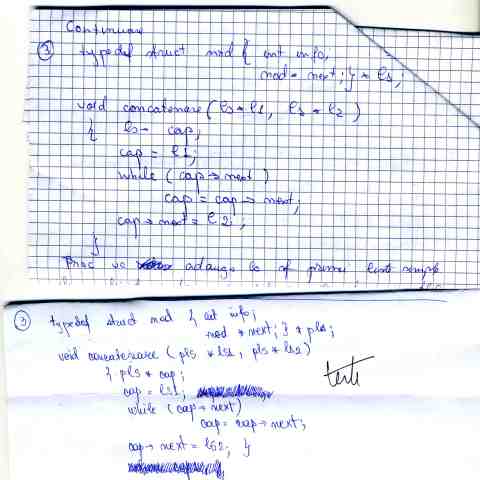 Continuare
③ typedef struct nod { int info,
nod * next; } * ls;
void concatenare (ls * l1, ls * l2)
{ ls * cap;
cap = l1;
while (cap → next)
cap = cap → next;
cap → next = l2;
}
Proc va adauga la sf primei liste
③ typedef struct nod { int info;
nod * next; } * pls;
void concatenare (pls * ls1, pls * ls2)
{ pls * cap;
cap = ls1;
while (cap → next)
cap = cap → next;
cap → next = ls2; }